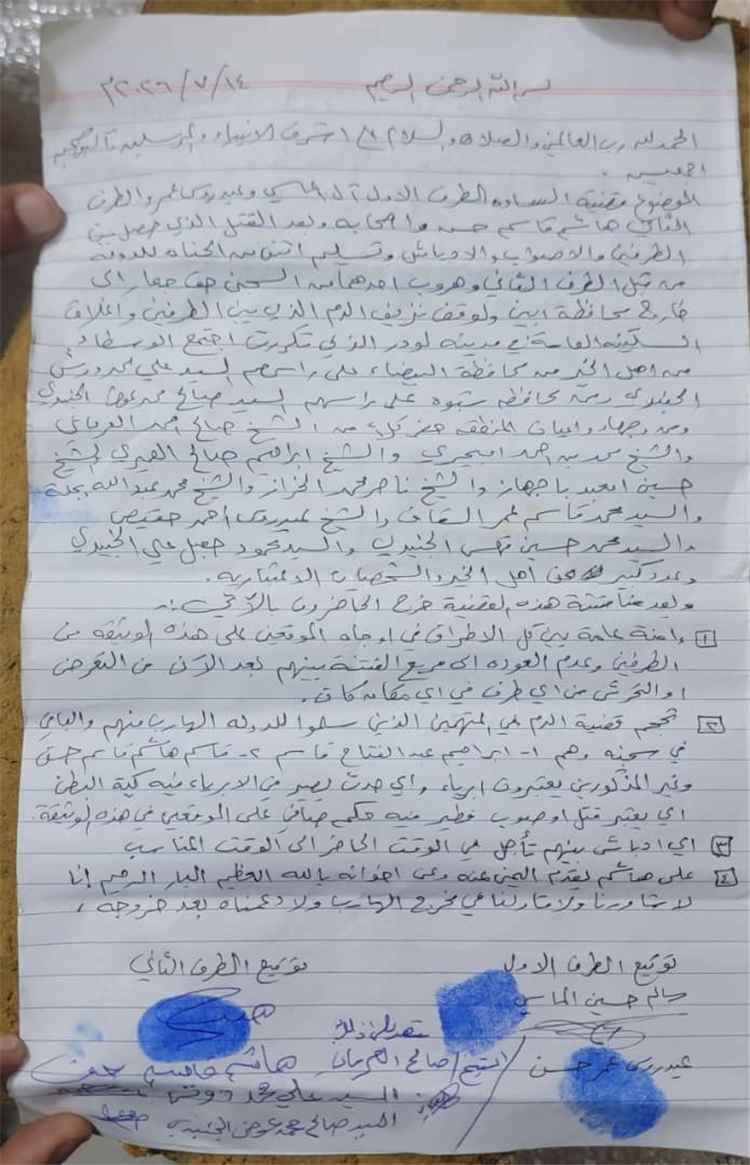 بسم الله الرحمن الرحيم ١٤/٧/٢٠٢٦م
الحمد لله رب العالمين والصلاة والسلام على اشرف الانبياء والمرسلين وآله وصحبه
اجمعين .
الموضوع قضية الساده الطرف الاول آل الماسي وعيدروس عمر والطرف
الثاني هاشم قاسم حسن واصحابه وبعد القتل الذي حصل بين
الطرفين والاصواب والادباش وتسليم اثنين من الجناه للدوله
من قبل الطرف الثاني وهروب احدهما من السجن الى
خارج محافظة ابين ولوقف نزيف الدم الذي بين الطرفين واغلاق
السكينه العامه في مدينه لودر الذي تكررت اجتمع الوسطاء
من اهل الخير من محافظة البيضاء على راسهم السيد علي محمد
ومن محافظه شبوه على راسهم السيد صالح محمد عوض الجنيدي
ومن وجهاء واعيان المنطقه حضر كلاً من الشيخ صالح احمد
والشيخ محمد بن احمد والشيخ ابراهيم صالح والشيخ
حسين والشيخ ناصر محمد الخزان والشيخ محمد عبدالله
والسيد محمد قاسم عمر السقاف والشيخ عيدروس أحمد
والسيد محمد حسين الجنيدي والسيد محمود جعبل علي الجنيدي
وعدد كبير من أهل الخير والشخصيات الاعتباريه .
وبعد مناقشة هذه القضية خرج الحاضرون بالآتي :-
١ وامنة عامه بين كل الاطراف في اوجاه الموقعين على هذه الوثيقه من
الطرفين وعدم العوده الى مربع الفتنة بينهم بعد الآن من التعرض
او التحرش من اي طرف في اي مكان كان .
٢ تحجم قضية الدم في المتهمين الذين سلموا للدوله الهارب منهم والباقي
في سجنه وهم ١- ابراهيم عبدالفتاح قاسم ٢- قاسم هاشم قاسم حسن
وغير المذكورين يعتبرون ابرياء واي حدث يصير في الابرياء فيه
اي يعتبر قتل او صوب فيه حكم على الموقعين في هذه الوثيقة .
٣ اي ادباش بينهم تأجل من الوقت الحاضر الى الوقت المناسب
٤ على هاشم يقدم اليمين عنه وعن اخوانه بالله العظيم البار الرحيم إنا
لا شاورنا ولا في مخرج الهارب ولا دعمناه بعد خروجه .
توقيع الطرف الاول توقيع الطرف الثاني
سالم حسين الماسي
عيدروس عمر حسن هاشم قاسم حسن
شهد على ذلك
الشيخ / صالح
السيد علي محمد
السيد صالح محمد عوض الجنيدي